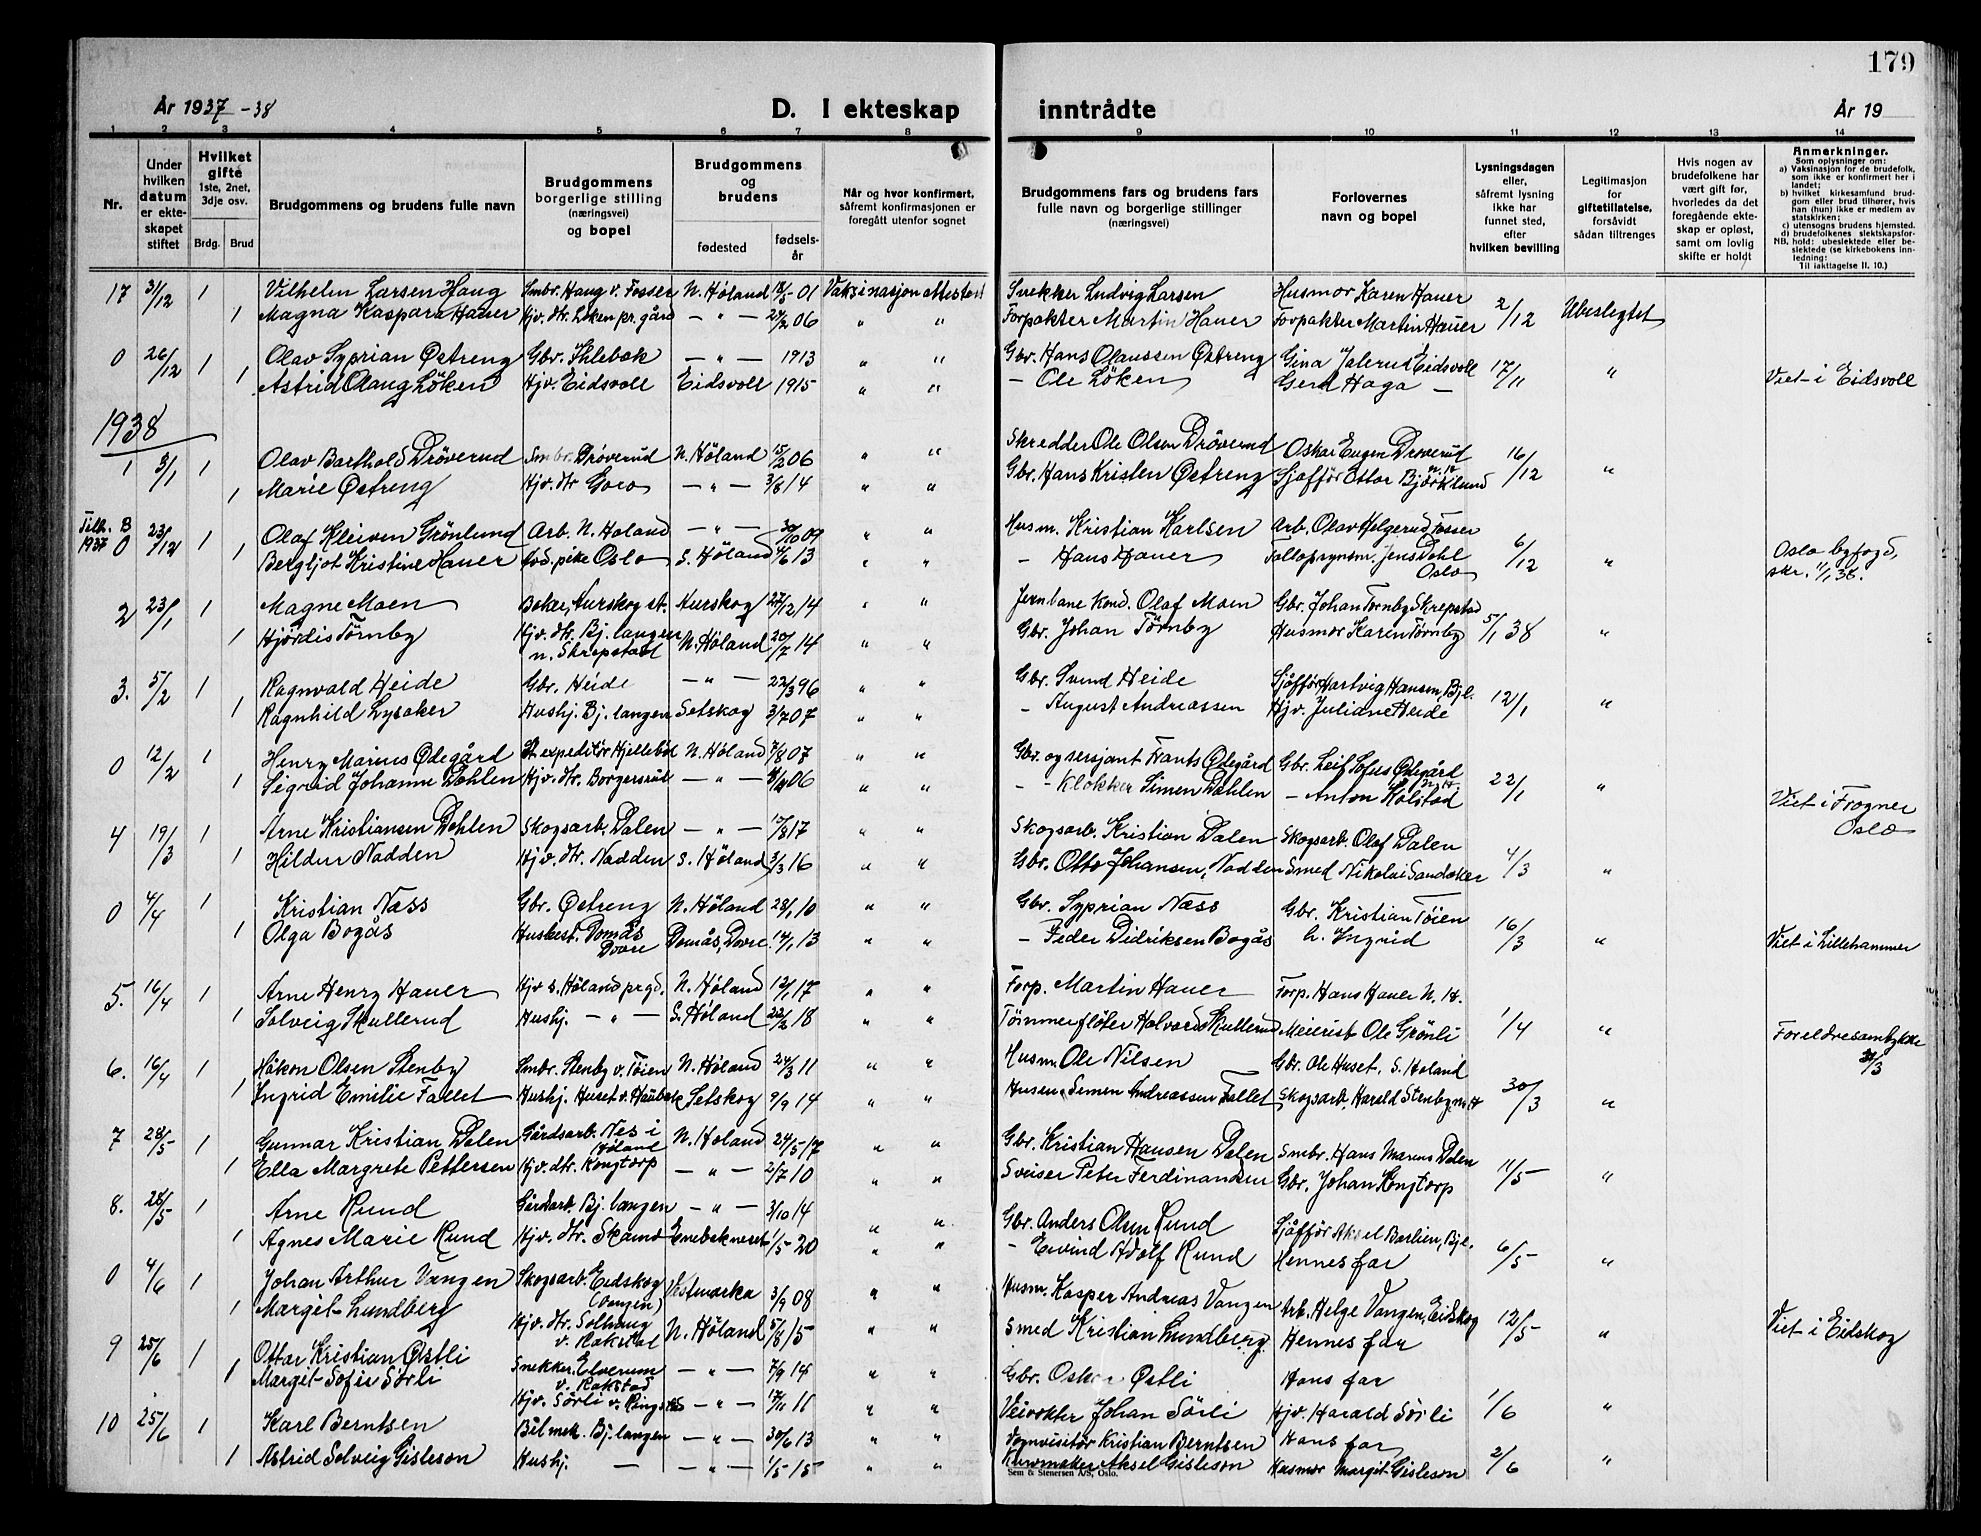 179
År 1937-38
D. I ekteskap inntrådte
År 19
1 2 3 4 5 6 7 8 9 10 11 12 13 14
Nr.
Under hvilken datum er ekteskapet stiftet
Hvilket gifte 1ste, 2net, 3dje osv.
Brdg. Brud
Brudgommens og brudens fulle navn
Brudgommens borgerlige stilling (næringsvei) og bopel
Brudgommens og brudens
fødested
fødselsår
Når og hvor konfirmert, såfremt konfirmasjonen er foregått utenfor sognet
Brudgommens fars og brudens fars fulle navn og borgerlige stillinger (næringsvei)
Forlovernes navn og bopel
Lysningsdagen eller, såfremt lysning ikke har funnet sted, efter hvilken bevilling
Legitimasjon for giftetillatelse, forsåvidt sådan tiltrenges
Hvis nogen av brudefolkene har vært gift før, hvorledes da det foregående ekteskap er opløst, samt om lovlig skifte er holdt
Anmerkninger.
Som oplysninger om:
a) Vaksinasjon for de brudefolk, som ikke er konfirmert her i landet;
b) hvilket kirkesamfund brudgom eller brud tilhører, hvis han (hun) ikke er medlem av statskirken;
c) utensogns brudens hjemsted.
d) brudefolkenes slektskapsforhold: ubeslektede eller beslektede (se kirkebokens innledning:
NB.
Til iakttagelse II. 10.)
17 31/12 1 Vilhelm Larsen Haug Smbr. Haug v. Fosser N. Höland 18/5-01 Vaksinasjon attestert Snekker Ludvig Larsen Husmor Karen Hauer 2/12 Ubeslegtet
1 Magna Kaspara Hauer Hjv. dtr. Löken pr. gård - " - 24/2 06 " " Forpakter Martin Hauer Forpakter Martin Hauer
0 26/12 1 Olav Syprian Østreng Gbr. Ihlebæk - " - 1913 " " Gbr. Hans Olaussen Østreng Gina Jalerud Eidsvoll 17/11 "
1 Astrid Olaug Löken Hjv. Eidsvoll Eidsvoll 1915 " " - Ole Löken Gerd Haga - Viet i Eidsvoll
1938
1 3/1 1 Olav Barthold Dröverud Smbr. Dröverud N. Höland 15/2 06 " " Skredder Ole Olsen Dröverud Oskar Eugen Dröverud N. H. 16/12 "
1 Marie Østreng Hjv. dtr - " - 3/8 14 " " Gbr. Hans Kristen Østreng Sjåfför Ottar Björklund
0 1937 23/12 1 Olaf Kleiven Grönlund Arb. N. Höland - " - 30/10 09 " " Husm. Kristian Karlsen Arb. Olav Helgerud Fosser 6/12 "
1 Bergljot Kristine Hauer Oslo S. Höland 4/6 13 " " - Hans Hauer Jens Dahl Oslo Oslo byfogd, skr. 11/1 38.
2 23/1 1 Magne Moen Baker, Aurskog st. Aurskog 27/12 14 " " Jernbane kond. Olaf Moen Gbr. Johan Törnby Skrepstad 5/1 38 "
1 Hjördis Törnby Hjv. dtr. Bj. langen n. Skrepstad N. Höland 20/7 14 " " Gbr. Johan Törnby Husmor Karen Törnby
3. 5/2 1 Ragnvald Heide Gbr. Heide - " - 22/3 96 " " Gbr. Svend Heide Sjåfför Hartvig Hansen, Bjl. 12/1 "
1 Ragnhild Lysaker Hushj. Bj. langen Setskog 3/7 07 " " - August Andreassen Hjv. Juliane Heide
0 12/2 1 Henry Marius Ødegård St. expeditör Hjellebøl N. Höland 7/8 07 " " Gbr. og sersjant Frants Ødegård Gbr. Leif Sofus Ødegård N. H. 22/1 "
1 Sigrid Johanne Dahlen Hjv. dtr. Borgersrud - " - 06 " " - Klokker Simen Dahlen - Anton Kolstad Viet i Frogner Oslo
4 19/3 1 Arne Kristiansen Dahlen Skogsarb. Dalen - " - 17/8 17 " " Skogsarb. Kristian Dalen Skogsarb. Olaf Dalen 4/3 "
1 Hildur Nadden Hjv. dtr. Nadden S. Höland 3/3 16 " " Gbr. Otto Johansen, Nadden Smed Nikolai Sandaker
0 4/4 1 Kristian Næss Gbr. Østreng N. Höland 28/1 10 " " Gbr. Syprian Næss Gbr. Kristian Töien 16/3 "
1 Olga Bogås Husbest. Domås Dovre Domås, Dovre 14/1 13 " " - Peder Didriksen Bogås h. Ingrid Viet i Lillehammer
5. 16/4 1 Arne Henry Hauer Hjv S. Höland prgd. N. Höland 12/1 17 " " Forp. Martin Hauer Forp. Hans Hauer N. H. 1/4 "
1 Solveig Skullerud Hushj. - " - S. Höland 22/2 18 " " Tömmerflöter Halvard Skullerud Meierist Ole Grönli Foreldresamtykke 31/3
6. 16/4 1 Håkon Olsen Stenby Smbr. Stenby v. Töien N. Höland 24/3 11 " " Husm. Ole Nilsen Gbr. Ole Huset. S. Höland 30/3 "
1 Ingrid Emilie Fallet Hushj. Huset v. Haubæk Setskog 9/9 14 " " Husm. Simen Andreassen Fallet Skogsarb. Harald Stenby N. H
7 28/5 1 Gunnar Kristian Dalen Gårdsarb. Nes i Höland N. Höland 24/5-17 " " Gbr. Kristian Hansen Dalen Smbr. Hans Marius Dalen 11/5 "
1 Ella Margrete Pettersen Hjv. dtr. Kongtorp - " - 2/7 10 " " Sveiser Peter Ferdinandsen Gbr. Johan Kongtorp
8. 28/5 1 Arne Rund Gårdsarb. Bj. langen - " - 3/10 14 " " Gbr. Anders Olsen Rund Sjåffør Aksel Barlien, Bjl. 6/5 "
1 Agnes Marie Rund Hjv. dtr. Skamo Enebakneset 1/5-20 " " - Eivind Adolf Rund Hennes far
0 4/6 1 Johan Arthur Vangen Skogsarb. Eidskog (Vangen) Vestmarka 3/9 08 " " Husm. Kasper Andreas Vangen Arb. Helge Vangen, Eidskog 12/5 "
1 Margit Lundberg Hjv. dtr. Solhaug v. Rakstad N. Höland 5/8 15 " " Smed Kristian Lundberg Hennes far Viet i Eidskog
9 25/6 1 Ottar Kristian Østli Snekker, Elverum v. Rakstad - " - 7/9 14 " " Gbr. Oskar Østli Hans far 1/6 "
1 Margit Sofie Sörli Hjv. Sörli v. - " - 17/11 11 " " Veivokter Johan Sörli Hjv. Harald Sörli
10 25/6 1 Karl Berntsen Bilmek. Bj. langen - " - 30/6 13 " " Kristian Berntsen Hans far 2/6 "
1 Astrid Solveig Gisleson Hushj. - - " - 1/5-15 " " Aksel Gisleson Husmor Margit Gisleson
Sem & Stenersen A/S, Oslo.